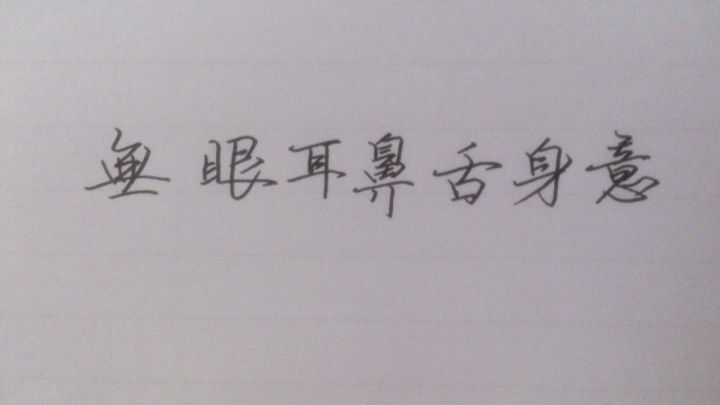 無眼耳鼻舌身意